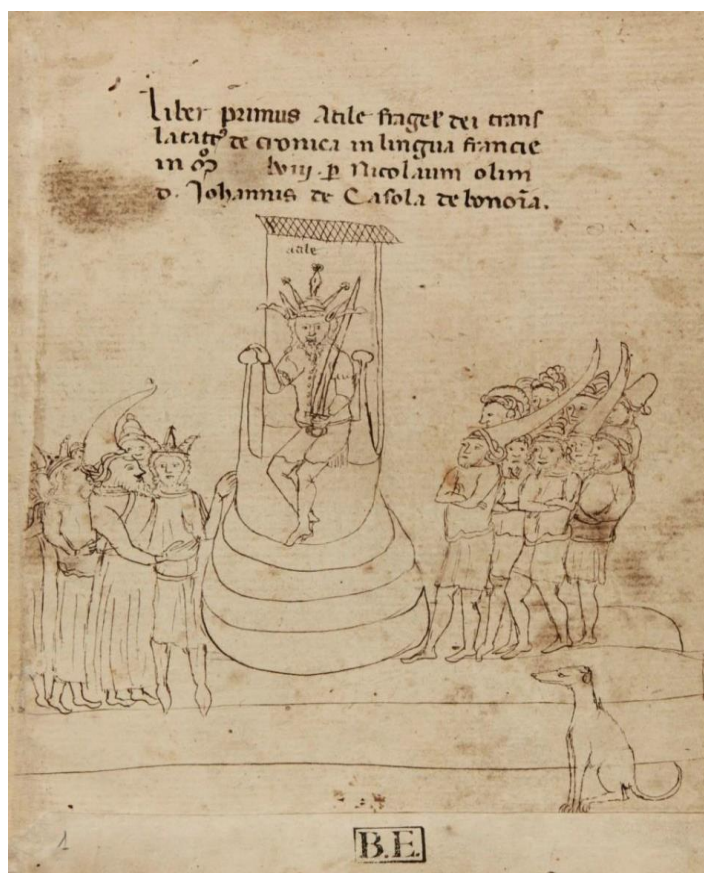 Liber primus Atile flagell' dei trans
latatus de cronica in lingua francie
in lviij. p Nicolaum olim
d. Johannis de Casola de bononia.
atile
1
B.E.